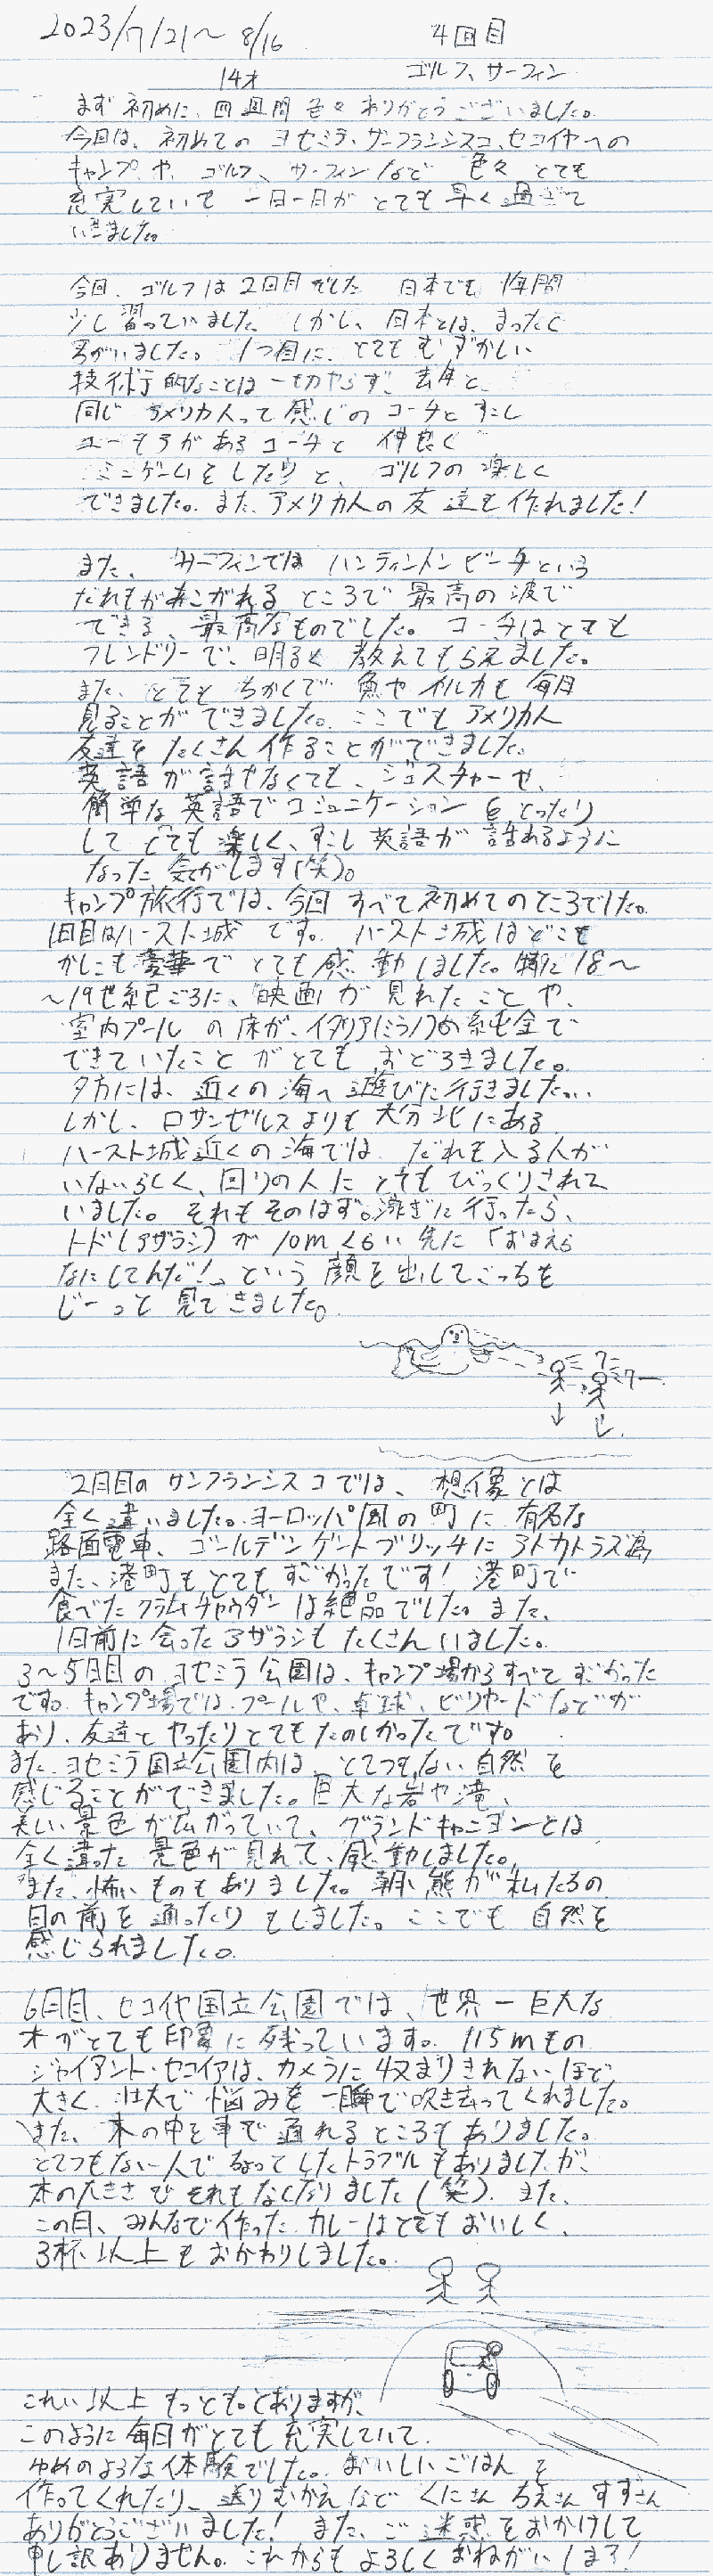 2023/7/21〜8/16
4回目
14才
ゴルフ、サーフィン
まず初めに、四週間色々ありがとうございました。
今回は、初めてのヨセミテ・サーフランシスコ、セコイヤへの
キャンプや、ゴルフ、サーフィンなど 色々とても
充実していて 一日一日がとても早く過ぎて
いきました。
今回、ゴルフは2回目でした 日本でも1年間
少し習っていました しかし、日本とは、まったく
ちがいました。1つ目に、とてもむずかしい
技術的なことは一切やらず、去年と
同じ アメリカ人って感じのコーチと すこし
ユーモアがあるコーチと 仲良く
ミニゲームをしたりと、ゴルフの楽しく
できました。また、アメリカ人の友達も作れました!
また、サーフィンでは ハンティントンビーチという
だれもがあこがれるところで最高の波で
できる、最高なものでした。コーチはとても
フレンドリーで、明るく 教えてもらえました。
また、とてもちかくで 魚やイルカも毎日
見ることができました。ここでもアメリカ人
友達をたくさん作ることができました。
英語が話せなくても、ジェスチャーせ、
簡単な英語でコミュニケーションをとったり
してとても楽しく、すこし英語が話めるように
なった気がします(笑)。
キャンプ旅行では、今回すべて初めてのところでした。
1日目はハースト城です。ハースト城はどこも
かしこも豪華でとても感動しました。特に18〜
〜19世紀ごろに、映画が見れたことや、
室内プールの床が、イタリアの純金で
できていたことがとてもおどろきました。
夕方には、近くの海へ遊びに行きました...
しかし、ロサンゼルスよりも大分北にある
ハースト城近くの海では、だれも入る人が
いないらしく、回りの人にとてもびっくりされて
いました。それもそのはず。泳ぎに行ったら、
トド(アザラシ)が10mくらい先に「おまえら
なにしてんだ!」という顔を出してこっちを
じーっと見てきました。
2日目のサンフランシスコでは、想像とは
全く違いました。ヨーロッパ風の町に有名な
路面電車、ゴールデンゲートブリッヂにアトカトラズ島
また、港町もとてもすごかったです! 港町で
食べたクラムチャウダーは絶品でした。また、
1日前に会ったアザラシもたくさんいました。
3〜5日目のヨセミテ公園は、キャンプ場からすべてすごかった
です。キャンプ場では、プールや、卓球、ビリヤードなどが
あり、友達とやったりとてもたのしかったです。
また、ヨセミテ国立公園内は、とてつもない自然を
感じることができました。巨大な岩や滝、
美しい景色が広がっていて、グランドキャニヨンとは
全く違った景色が見れて、感動しました。
また、怖いものもありました。朝、熊が私たちの
目の前を通ったりもしました。ここでも 自然を
感じられました。
6日目、セコイヤ国立公園では、世界一巨大な
木がとても印象に残っています。115mもの
ジャイアント・セコイアは、カメラに収まりきれないほど
大きく、壮大で悩みを一瞬で吹き去ってくれました。
また、木の中を車で通れるところもありました。
とてつもない人で ちょっとしたトラブルもありましたが、
木の大きさでそれもなくなりました(笑)。また、
この日、みんなで作ったカレーはとてもおいしく、
3杯以上もおかわりしました。
これい以上 もっともっとありますが、
このように毎日がとても充実していて、
ゆめのような体験でした。おいしいごはんを
作ってくれたり、送りむかえなど くにさん ちえさん すずさん
ありがとうございました! また、ご迷惑をおかけして
申し訳ありません。これからもよろしくおねがいします!